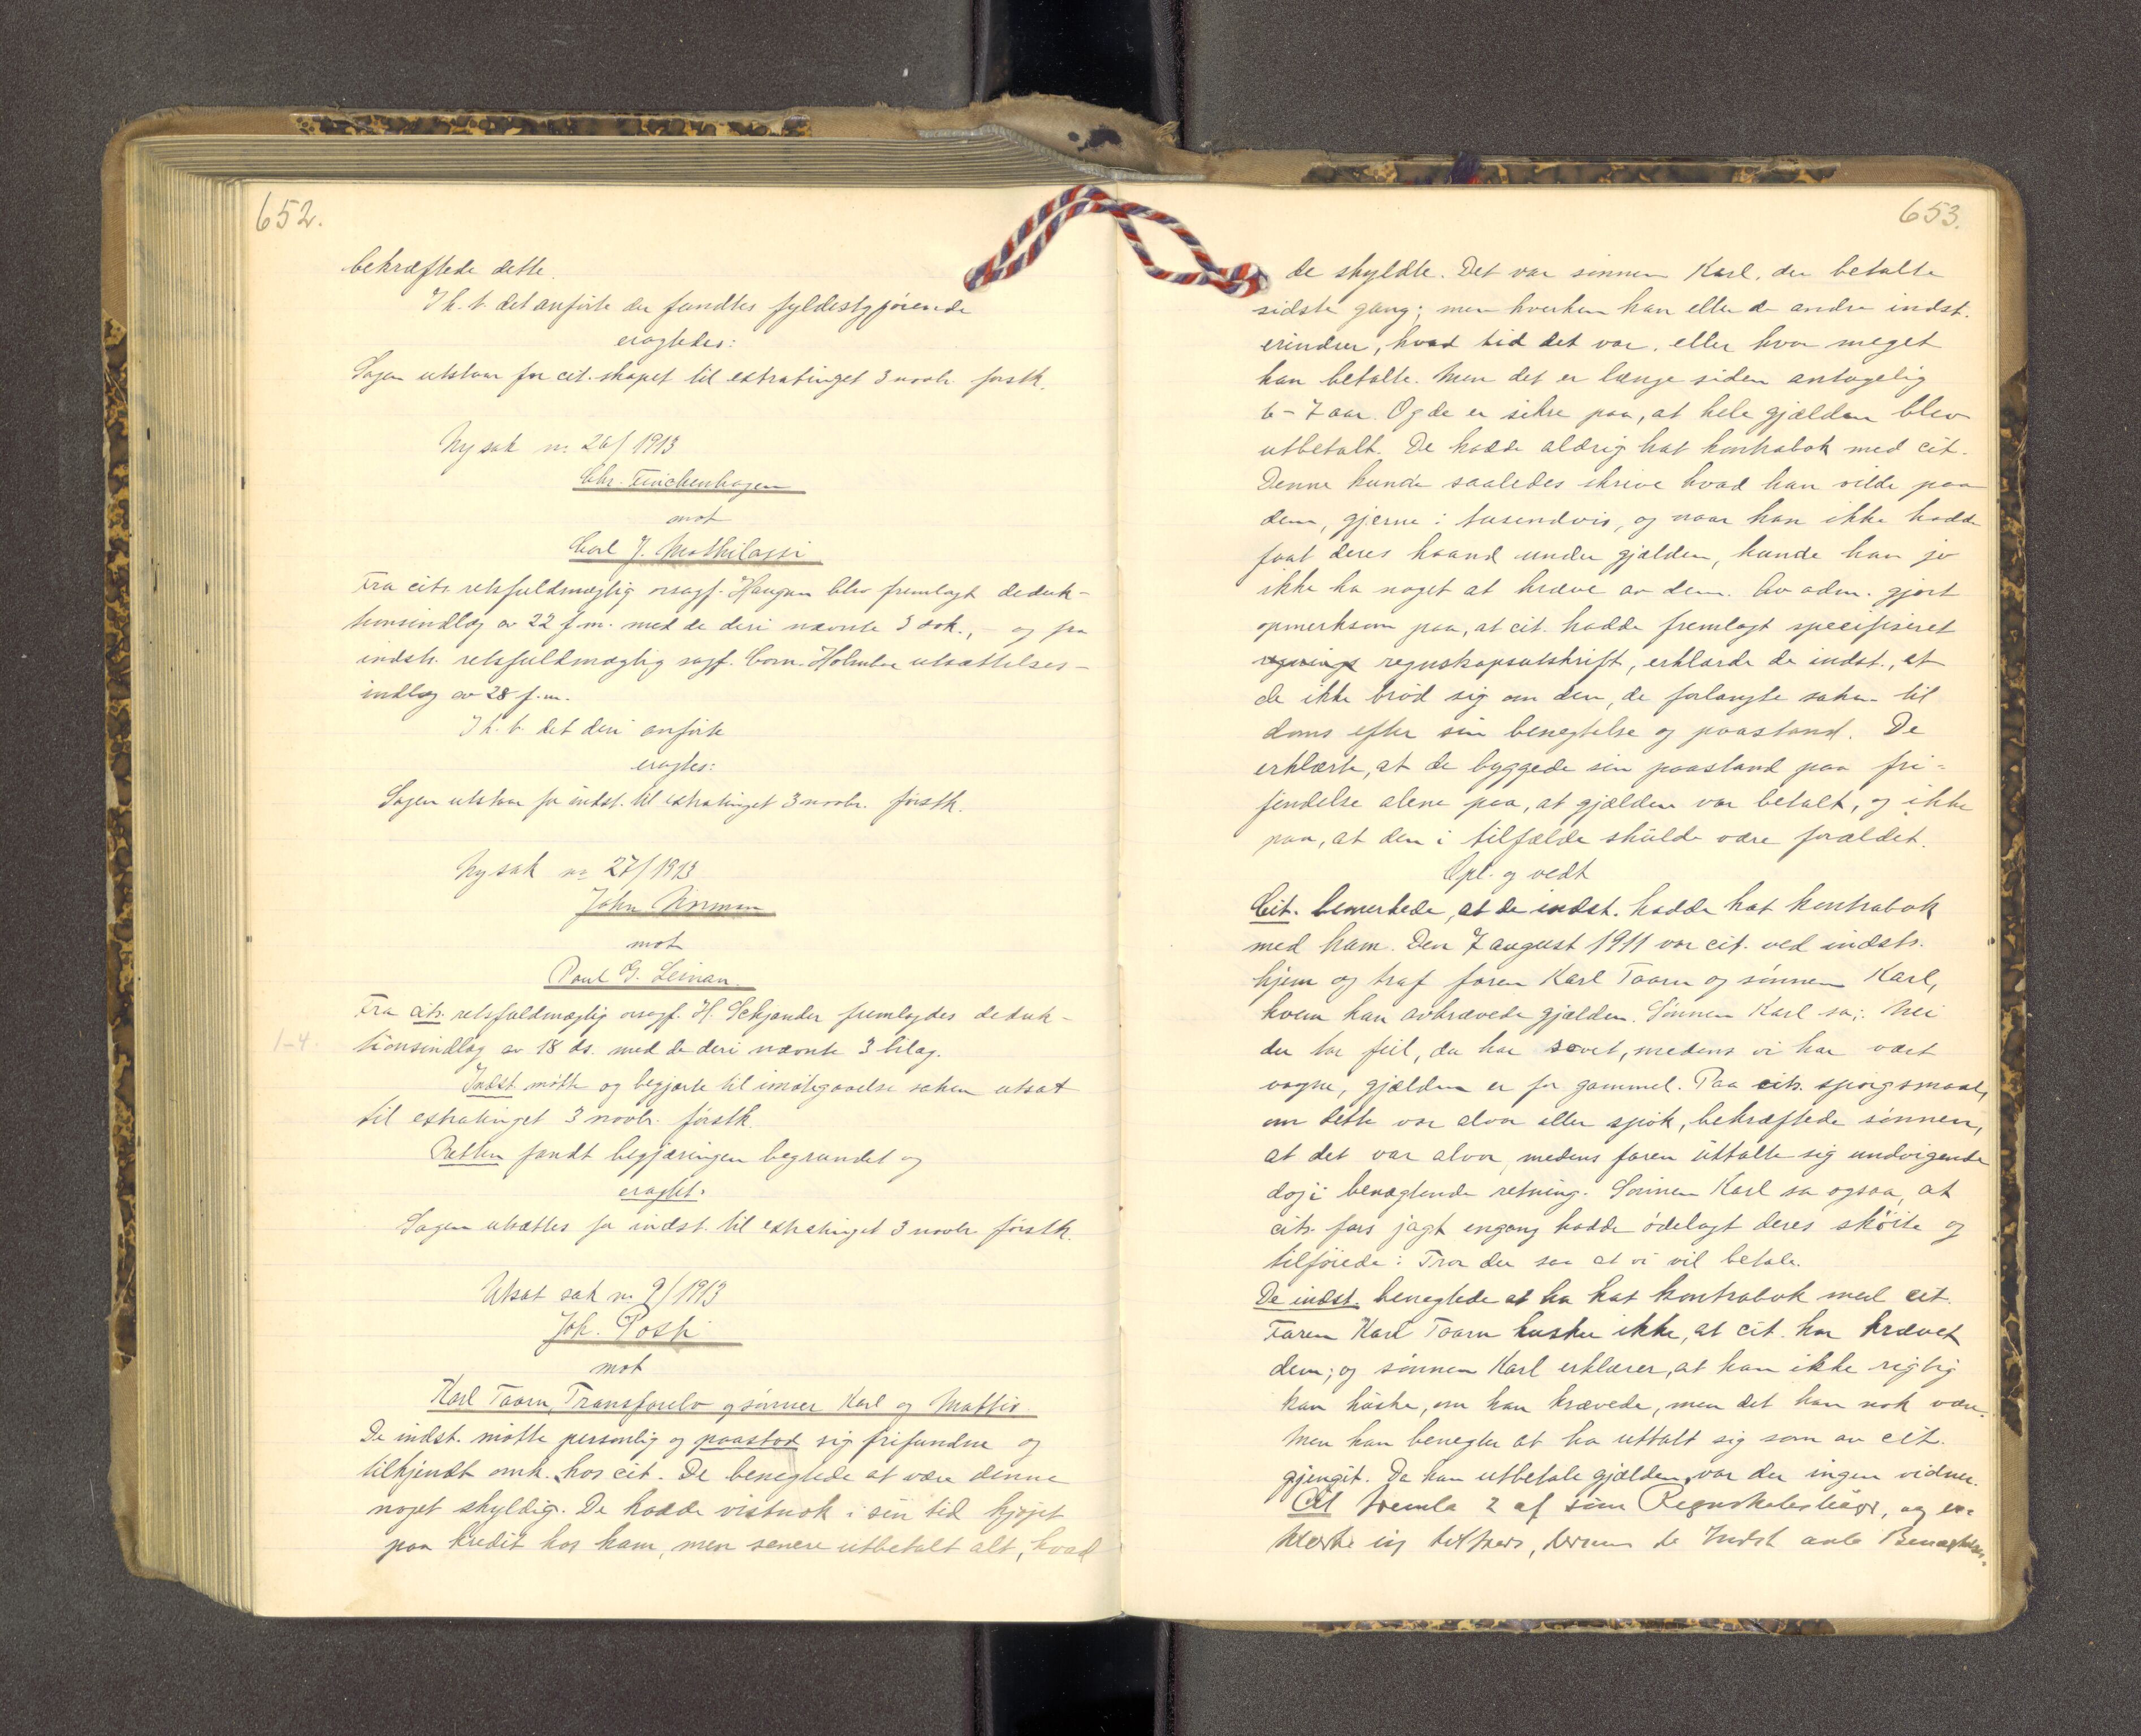 652.
bekræftede dette.
I h. t. det anførte der fandtes fyldestgjørende
eragtedes:
Sagen utstaar for cit.skapet til extratinget 3 novbr. førstk.
Ny sak nr. 26/1913
Chr. Finckenhagen
mot
Carl J. Mathilassi
Fra cits. retsfuldmægtig orsagf. Haugan blev fremlagt deduk-
tionsindlæg av 22 f.m. med de deri nævnte 3 dok., – og fra
indsts. retsfuldmægtig sagf. Corn. Holmboe utsættelses-
indlæg av 28 f.m.
I h. t. det deri anførte
eragtes:
Sagen utstaar for indst. til extratinget 3 novbr. førstk.
Ny sak nr. 27/1913
John Norman
mot
Paul G. Leinan.
Fra cits. retsfuldmægtig orsagf. H. Schjander fremlagdes deduk-
1–4. tionsindlæg av 18 ds. med de deri nævnte 3 bilag.
Indst. møtte og begjærte til imøtegaaelse saken utsat
til extratinget 3 novbr. førstk.
Retten fandt begjæringen begrundet og
eragtet:
Sagen utsættes for indst. til extratinget 3 novbr. førstk.
Utsat sak nr. 9/1913
Joh. Posti
mot
Karl Taarn, Transfarelv og sønner Karl og Mattis.
De indst. møtte personlig og paastod sig frifundne og
tilkjendt omk. hos cit. De benegtede at være denne
noget skyldig. De hadde vistnok i sin tid kjøpt
paa kredit hos ham, men senere utbetalt alt, hvad
653.
de skyldte. Det var sønnen Karl, der betalte
sidste gang; men hverken han eller de andre indst.
erindrer, hvad tid det var, eller hvor meget
han betalte. Men det er længe siden antagelig
6–7 aar. Og de er sikre paa, at hele gjælden blev
utbetalt. De hadde aldrig hat kontrabok med cit.
Denne kunde saaledes skrive hvad han vilde paa
dem, gjerne i tusendvis, og naar han ikke hadde
faat deres haand under gjælden, kunde han jo
ikke ha noget at kræve av dem. Av adm. gjort
opmerksom paa, at cit. hadde fremlagt specifiseret
regnskapsutskrift, erklærde de indst., at
de ikke brød sig om den, de forlangte saken til
doms efter sin benegtelse og paastand. De
erklærte, at de byggede sin paastand paa fri-
findelse alene paa, at gjælden var betalt, og ikke
paa, at den i tilfælde skulde være forældet.
Opl. og vedt
Cit. bemerkede, at de indst. hadde hat kontrabok
med ham. Den 7 august 1911 var cit. ved indsts.
hjem og traf faren Karl Taarn og sønnen Karl,
hvem han avkrævede gjælden. Sønnen Karl sa: Nei
du tar feil, du har sovet, medens vi har vært
vaagne, gjælden er for gammel. Paa cits. spørgsmaal,
om dette var alvor eller spøk, bekræftede sønnen,
at det var alvor, medens faren uttalte sig undvigende
dog i benægtende retning. Sønnen Karl sa ogsaa, at
cits. fars jagt engang hadde ødelagt deres skøite og
tilføiede: Tror du saa at vi vil betale.
De indst. benegtede at ha hat kontrabok med cit.
Faren Karl Taarn husker ikke, at cit. har krævet
dem; og sønnen Karl erklærer, at han ikke rigtig
kan huske, om han krævede, men det kan nok være.
Men han benegter at ha uttalt sig som av cit.
gjengit. Da han utbetalte gjælden, var der ingen vidner.
Cit fremla 2 af sine Regnskabsbøger, og er-
klærte sig tilfreds, dersom de Indst